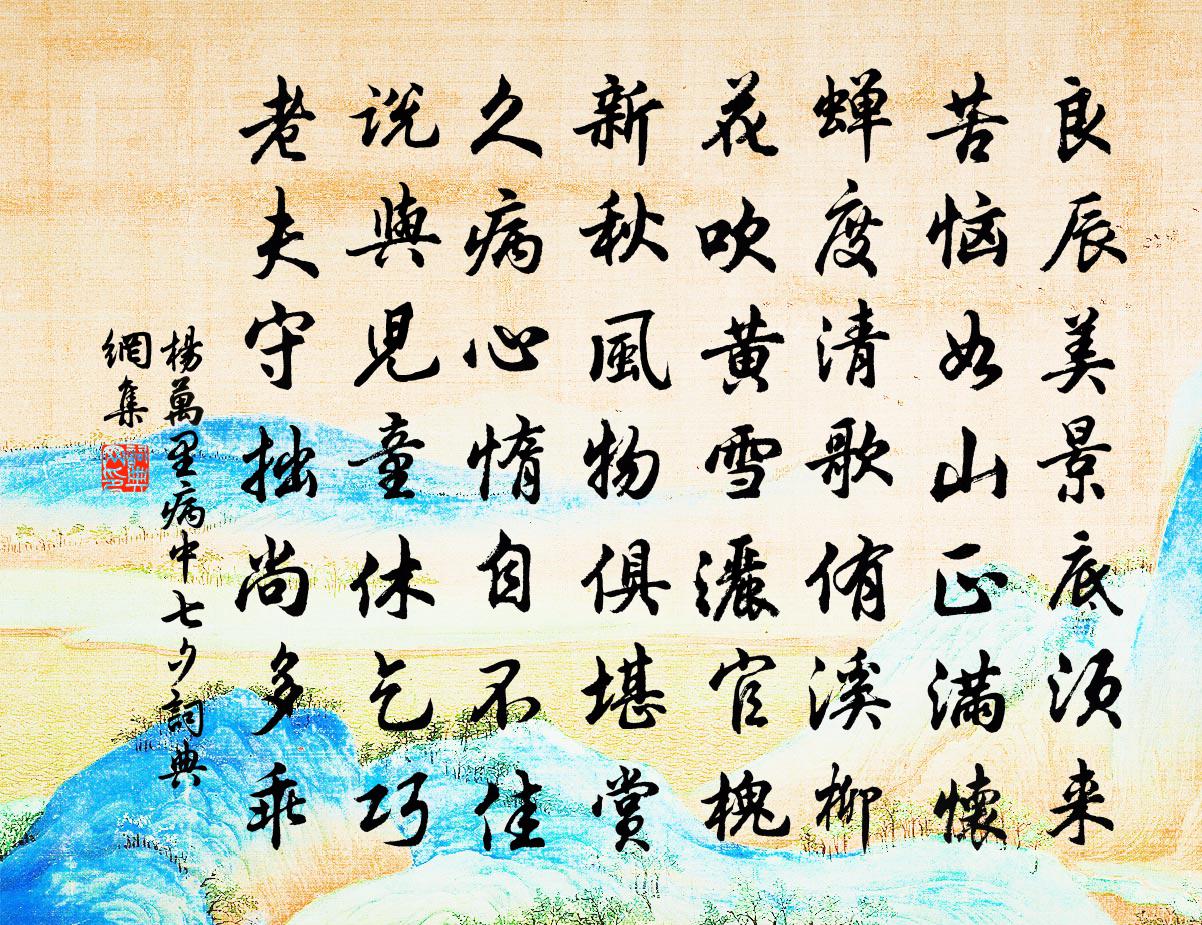 良辰美景底须来
苦恼如山正满懷
蝉度清歌侑溪柳
花吹黄雪灑官槐
新秋風物俱堪賞
久病心惰自不佳
説與児童休乞巧
老夫守拙尚多乖
楊萬里病中七夕詞典
網集